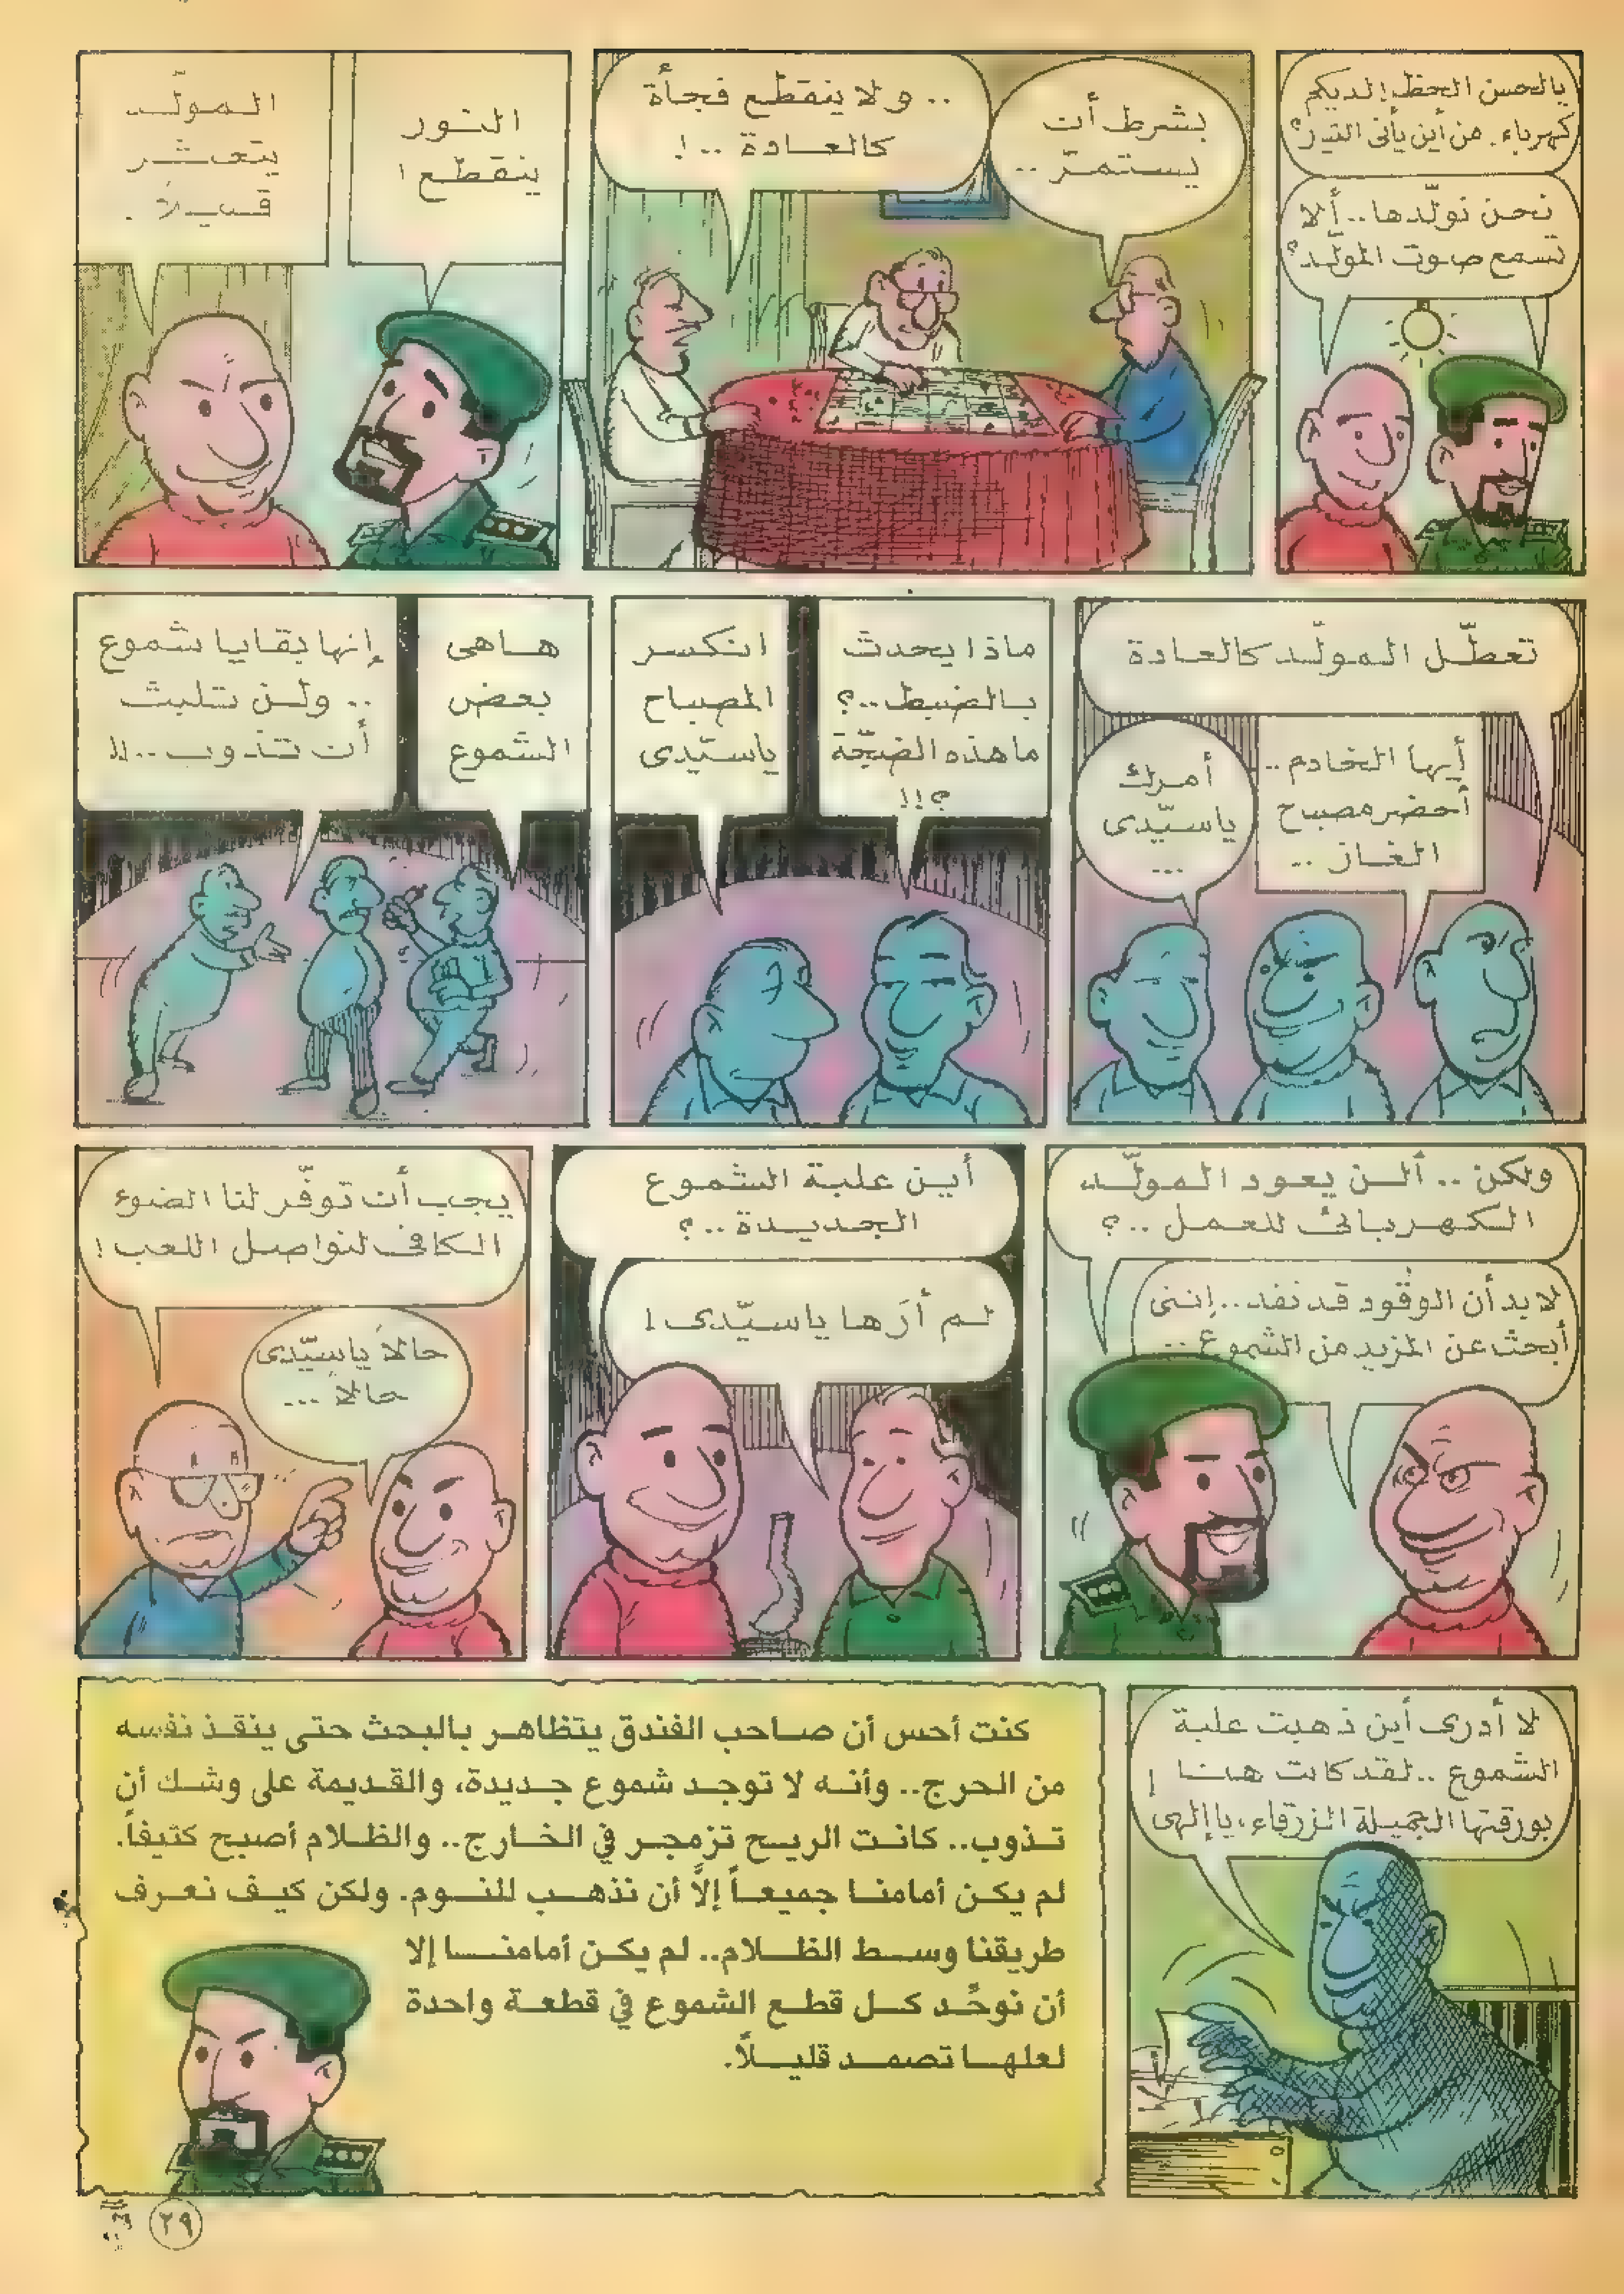 يالحسن الحظ! لديكم
كهرباء. من أين يأتى التيار؟
نحن نولّدها.. ألا
تسمع صوت المولّد؟
بشرط أن
يستمرّ ..
.. ولا ينقطع فجأة
كالعادة ..!
النور
ينقطع!
المولّد
يتعثر
قليلاً .
تعطّل المولّد كالعادة
أيها الخادم ..
أحضر مصباح
الغاز ..
أمرك
ياسيّدى
...
ماذا يحدث
بالضبط..؟
ما هذه الضجّة
؟!!
انكسر
المصباح
ياسيّدى
هاهى
بعض
الشموع
إنها بقايا شموع
.. ولن تلبث
أن تذوب..!!
ولكن .. ألن يعود المولّد
الكهربائى للعمل ..؟
لابد أن الوقود قد نفد.. إننى
أبحث عن المزيد من الشموع ...
أين علبة الشموع
الجديدة ..؟
لم أرَها ياسيّدى!
يجب أن توفّر لنا الضوء
الكافى لنواصل اللعب!
حالاً ياسيّدى
حالاً ...
لا أدرى أين ذهبت علبة
الشموع .. لقد كانت هنا !
بورقتها الجميلة الزرقاء، يا إلهى
كنت أحس أن صاحب الفندق يتظاهر بالبحث حتى ينقذ نفسه
من الحرج.. وأنه لا توجد شموع جديدة، والقديمة على وشك أن
تذوب.. كانت الريح تزمجر في الخارج.. والظلام أصبح كثيفاً.
لم يكن أمامنا جميعاً إلاَّ أن نذهب للنوم. ولكن كيف نعرف
طريقنا وسط الظلام.. لم يكن أمامنا إلا
أن نوحِّد كل قطع الشموع في قطعة واحدة
لعلها تصمد قليلاً.
٢٩